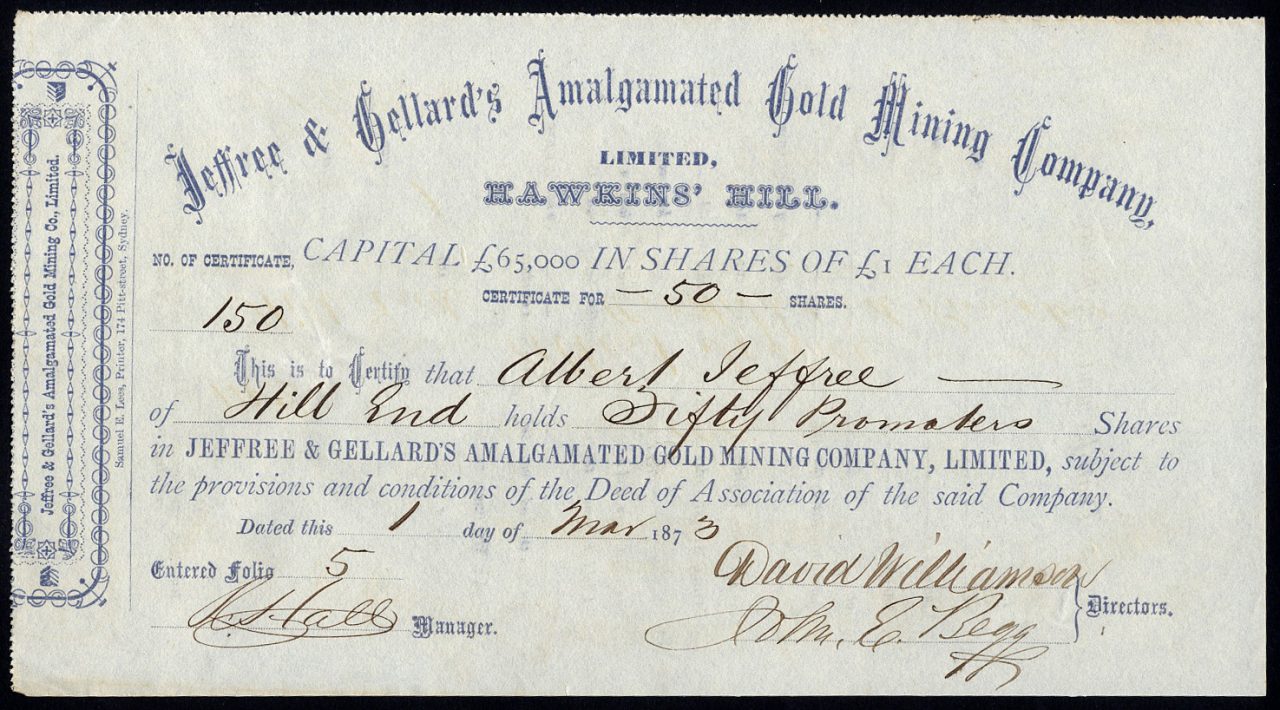 Jeffree & Gellard's Amalgamated Gold Mining Company,
LIMITED,
HAWKINS' HILL.
NO. OF CERTIFICATE, CAPITAL £65,000 IN SHARES OF £1 EACH.
CERTIFICATE FOR — 50 — SHARES.
150
This is to Certify that Albert Jeffree —
of Hill End holds Fifty Promoters Shares
in JEFFREE & GELLARD'S AMALGAMATED GOLD MINING COMPANY, LIMITED, subject to
the provisions and conditions of the Deed of Association of the said Company.
Dated this 1 day of Mar 1873
Entered Folio 5
David Williamson
Hall Manager.
John. E. Begg
Directors.
Jeffree & Gellard's Amalgamated Gold Mining Co., Limited.
Samuel E. Lees, Printer, 174 Pitt-street, Sydney.